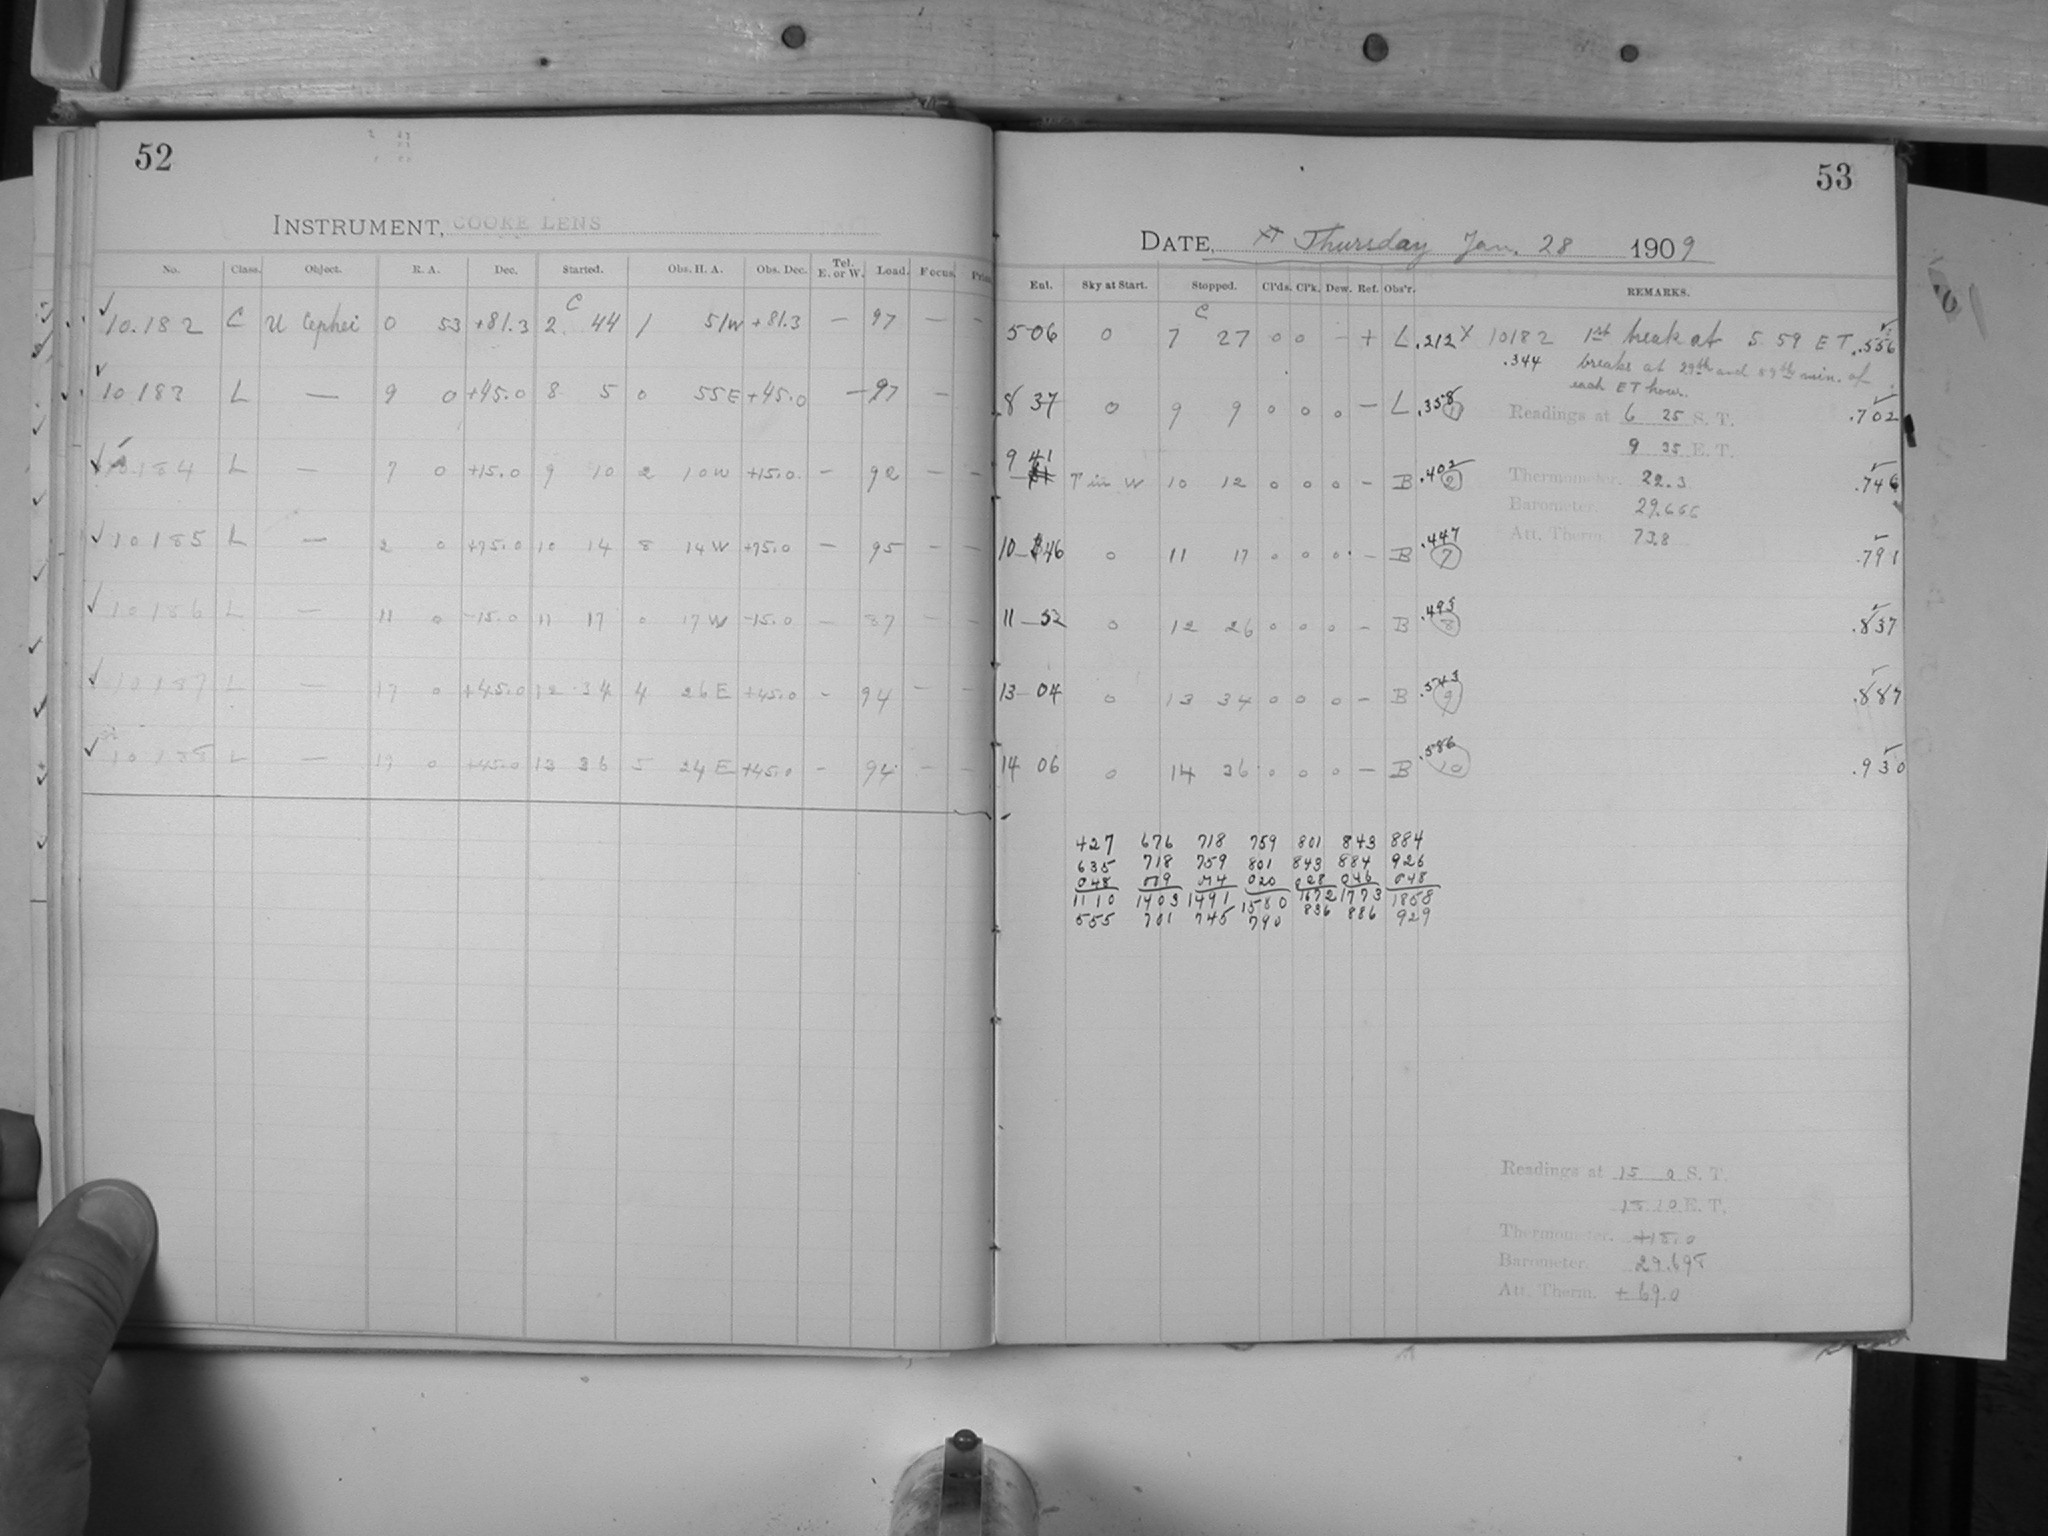 52
INSTRUMENT, COOKE LENS
No. Class. Object. R. A. Dec. Started. Obs. H. A. Obs. Dec. Tel. E. or W. Load. Focus.
10.182 C U Cephei 0 53 +81.3 2 C 44 1 51W +81.3 — 97 — —
10183 L — 9 0 +45.0 8 5 0 55E +45.0 — 97 —
10184 L — 7 0 +15.0 9 10 2 10W +15.0 — 92 — —
10185 L — 2 0 +75.0 10 14 8 14W +75.0 — 95 — —
10186 L — 11 0 -15.0 11 17 0 17W -15.0 — 87 — —
10187 L — 17 0 +45.0 12 34 4 26E +45.0 - 94 — —
10188 L — 19 0 +45.0 13 36 5 24E +45.0 - 94 — —
53
DATE, Thursday Jan. 28 1909
Sky at Start. Stopped. Cl'ds. Cl'k. Dew. Ref. Obs'r. REMARKS.
5 06 0 7 C 27 0 0 - + L .212 X 10182 1st break at 5 59 ET .556
.344 breaks at 29th and 59th min. of
each ET hour.
8 37 0 9 9 0 0 0 — L .358 1 Readings at 6 25 S. T. .702
9 35 E. T.
9 41 T in W 10 12 0 0 0 - B .402 2 Thermometer. 22.3 .746
Barometer. 29.666
10 46 0 11 17 0 0 0 - B .447 7 Att. Therm. 73.8 .791
11 52 0 12 26 0 0 0 - B .493 8 .837
13 04 0 13 34 0 0 0 - B .543 9 .887
14 06 0 14 36 0 0 0 — B .586 10 .930
427 676 718 759 801 843 884
635 718 759 801 843 884 926
048 009 014 020 028 046 048
1110 1403 1491 1580 1672 1773 1858
555 701 745 790 836 886 929
Readings at 15 0 S. T.
15 10 E. T.
Thermometer. +18.0
Barometer. 29.698
Att. Therm. + 69.0